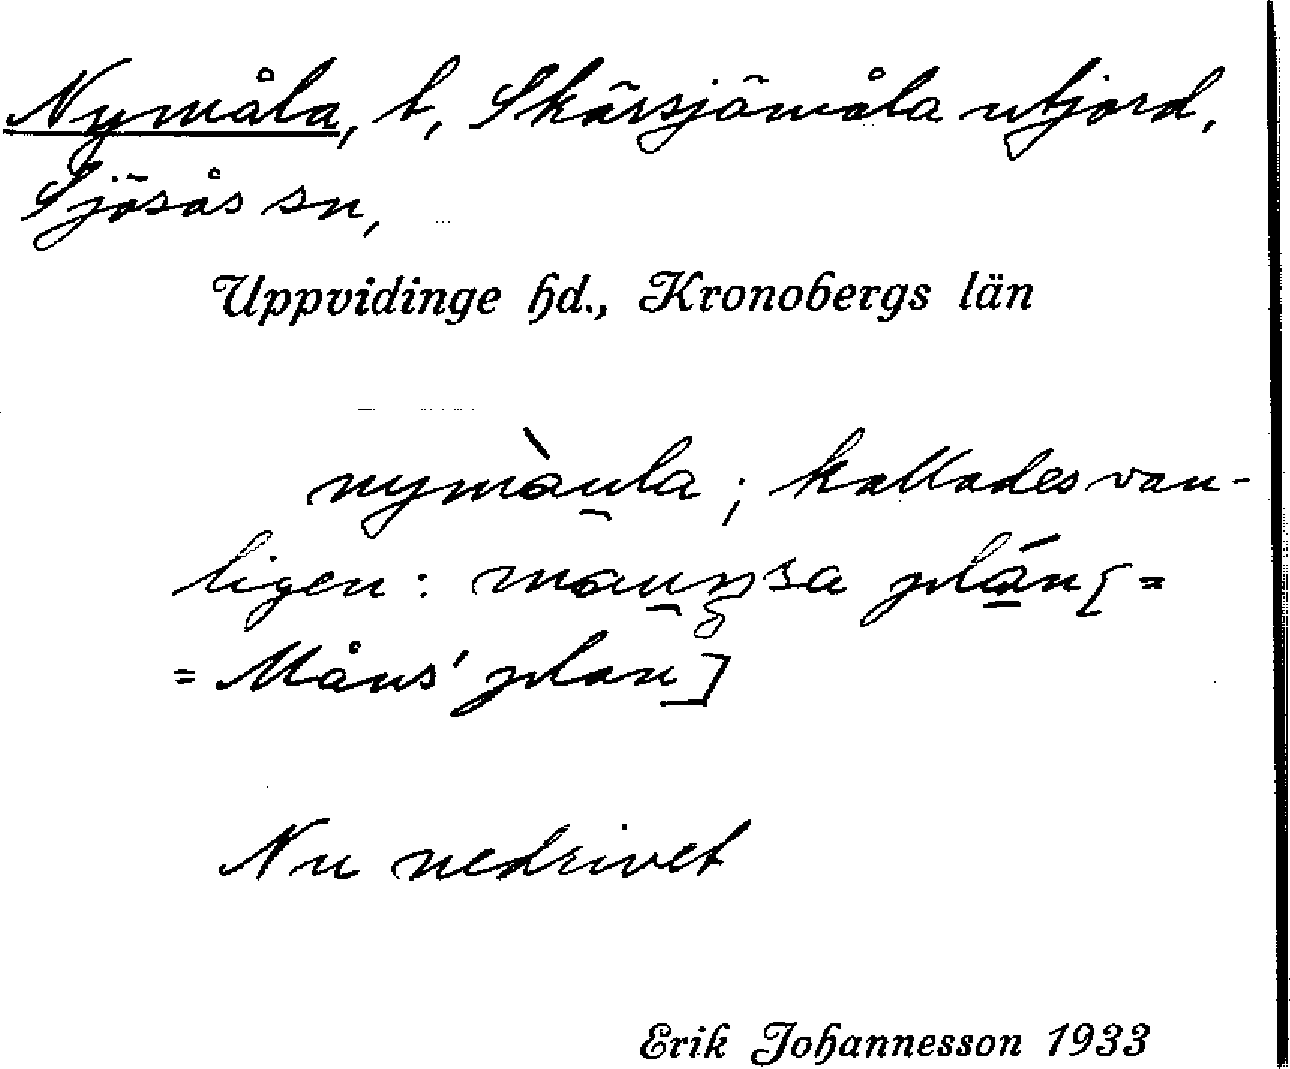 Nymåla, t, Skärsjömåla utjord,
Sjösås sn,
Uppvidinge hd., Kronobergs län
nymàu̯la; kallades van-
ligen: mau̯n̥sa plán [=
= Måns' plan]
Nu nedrivet
Erik Johannesson 1933